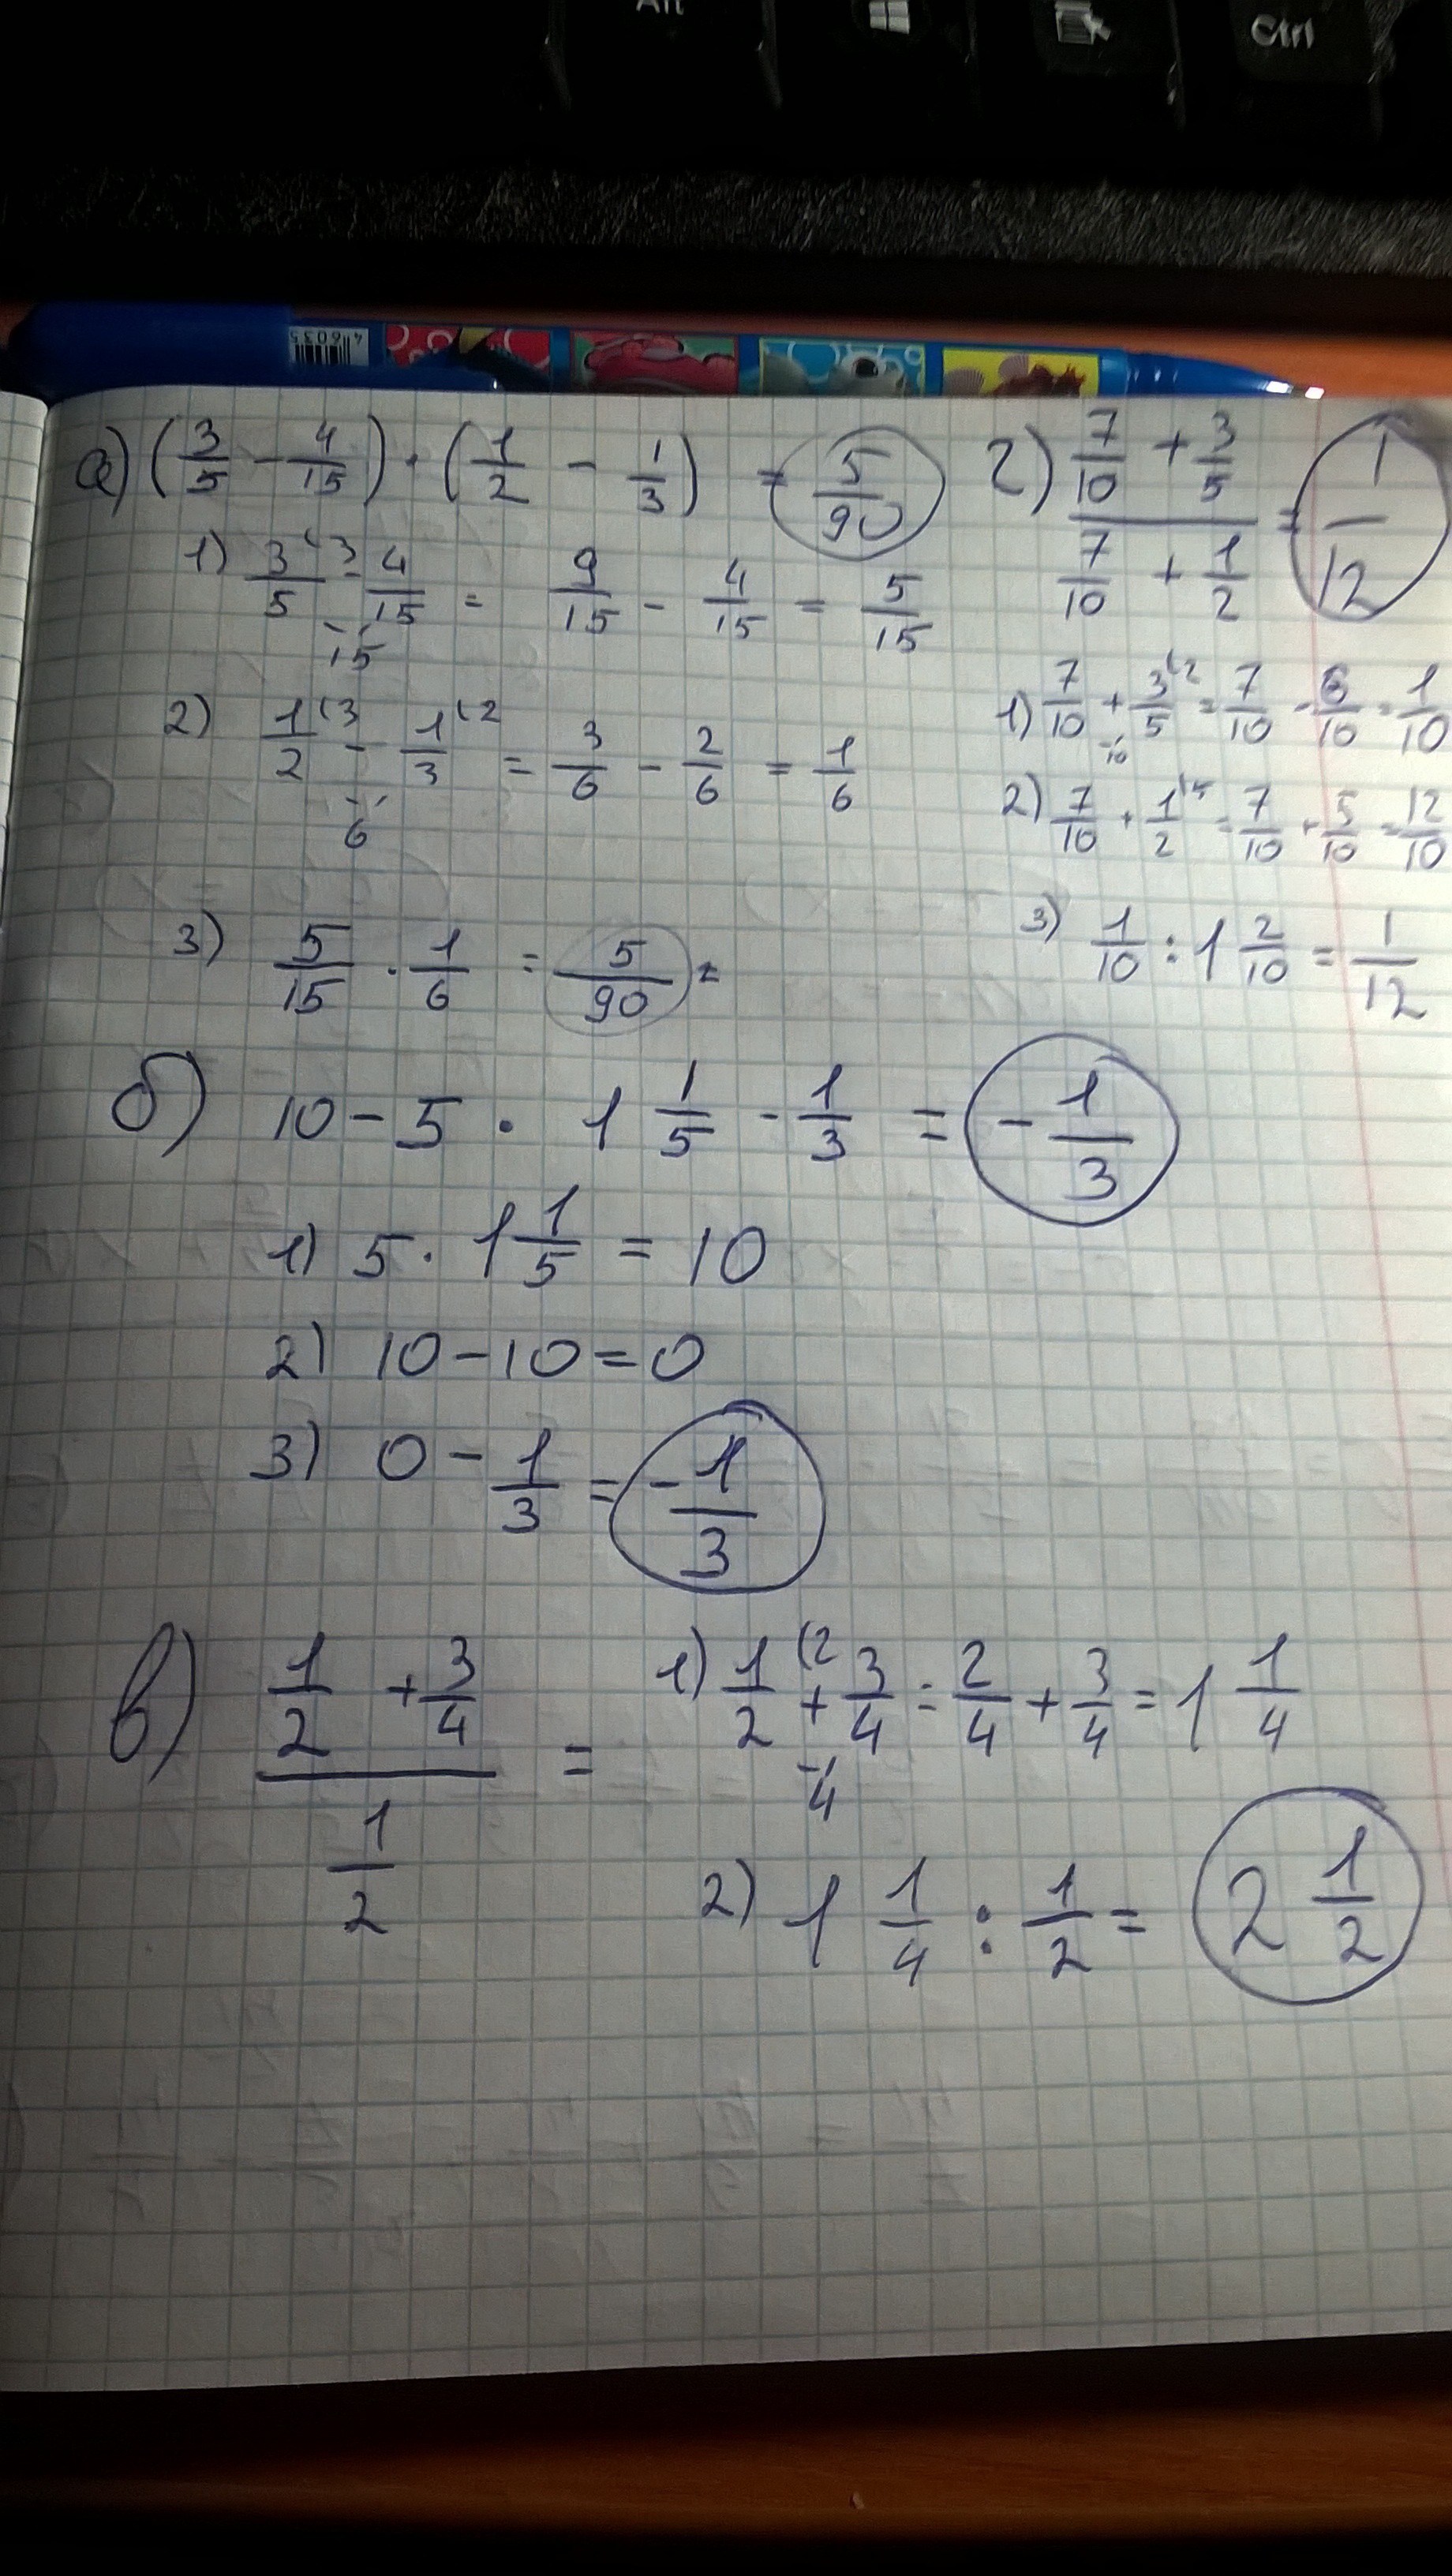 Alt
Ctrl
46035
а) (3/5 - 4/15) · (1/2 - 1/3) = 5/90
1) 3/5 (3 - 4/15 = 9/15 - 4/15 = 5/15
15
2) 1/2 (3 - 1/3 (2 = 3/6 - 2/6 = 1/6
6
3) 5/15 · 1/6 = 5/90 =
г) (7/10 + 3/5)/(7/10 + 1/2) = 1/12
1) 7/10 + 3/5 (2 = 7/10 - 6/10 = 1/10
10
2) 7/10 + 1/2 (5 = 7/10 + 5/10 = 12/10
3) 1/10 : 1 2/10 = 1/12
б) 10 - 5 · 1 1/5 - 1/3 = - 1/3
1) 5 · 1 1/5 = 10
2) 10 - 10 = 0
3) 0 - 1/3 = - 1/3
в) (1/2 + 3/4)/(1/2) =
1) 1/2 (2 + 3/4 = 2/4 + 3/4 = 1 1/4
4
2) 1 1/4 : 1/2 = 2 1/2